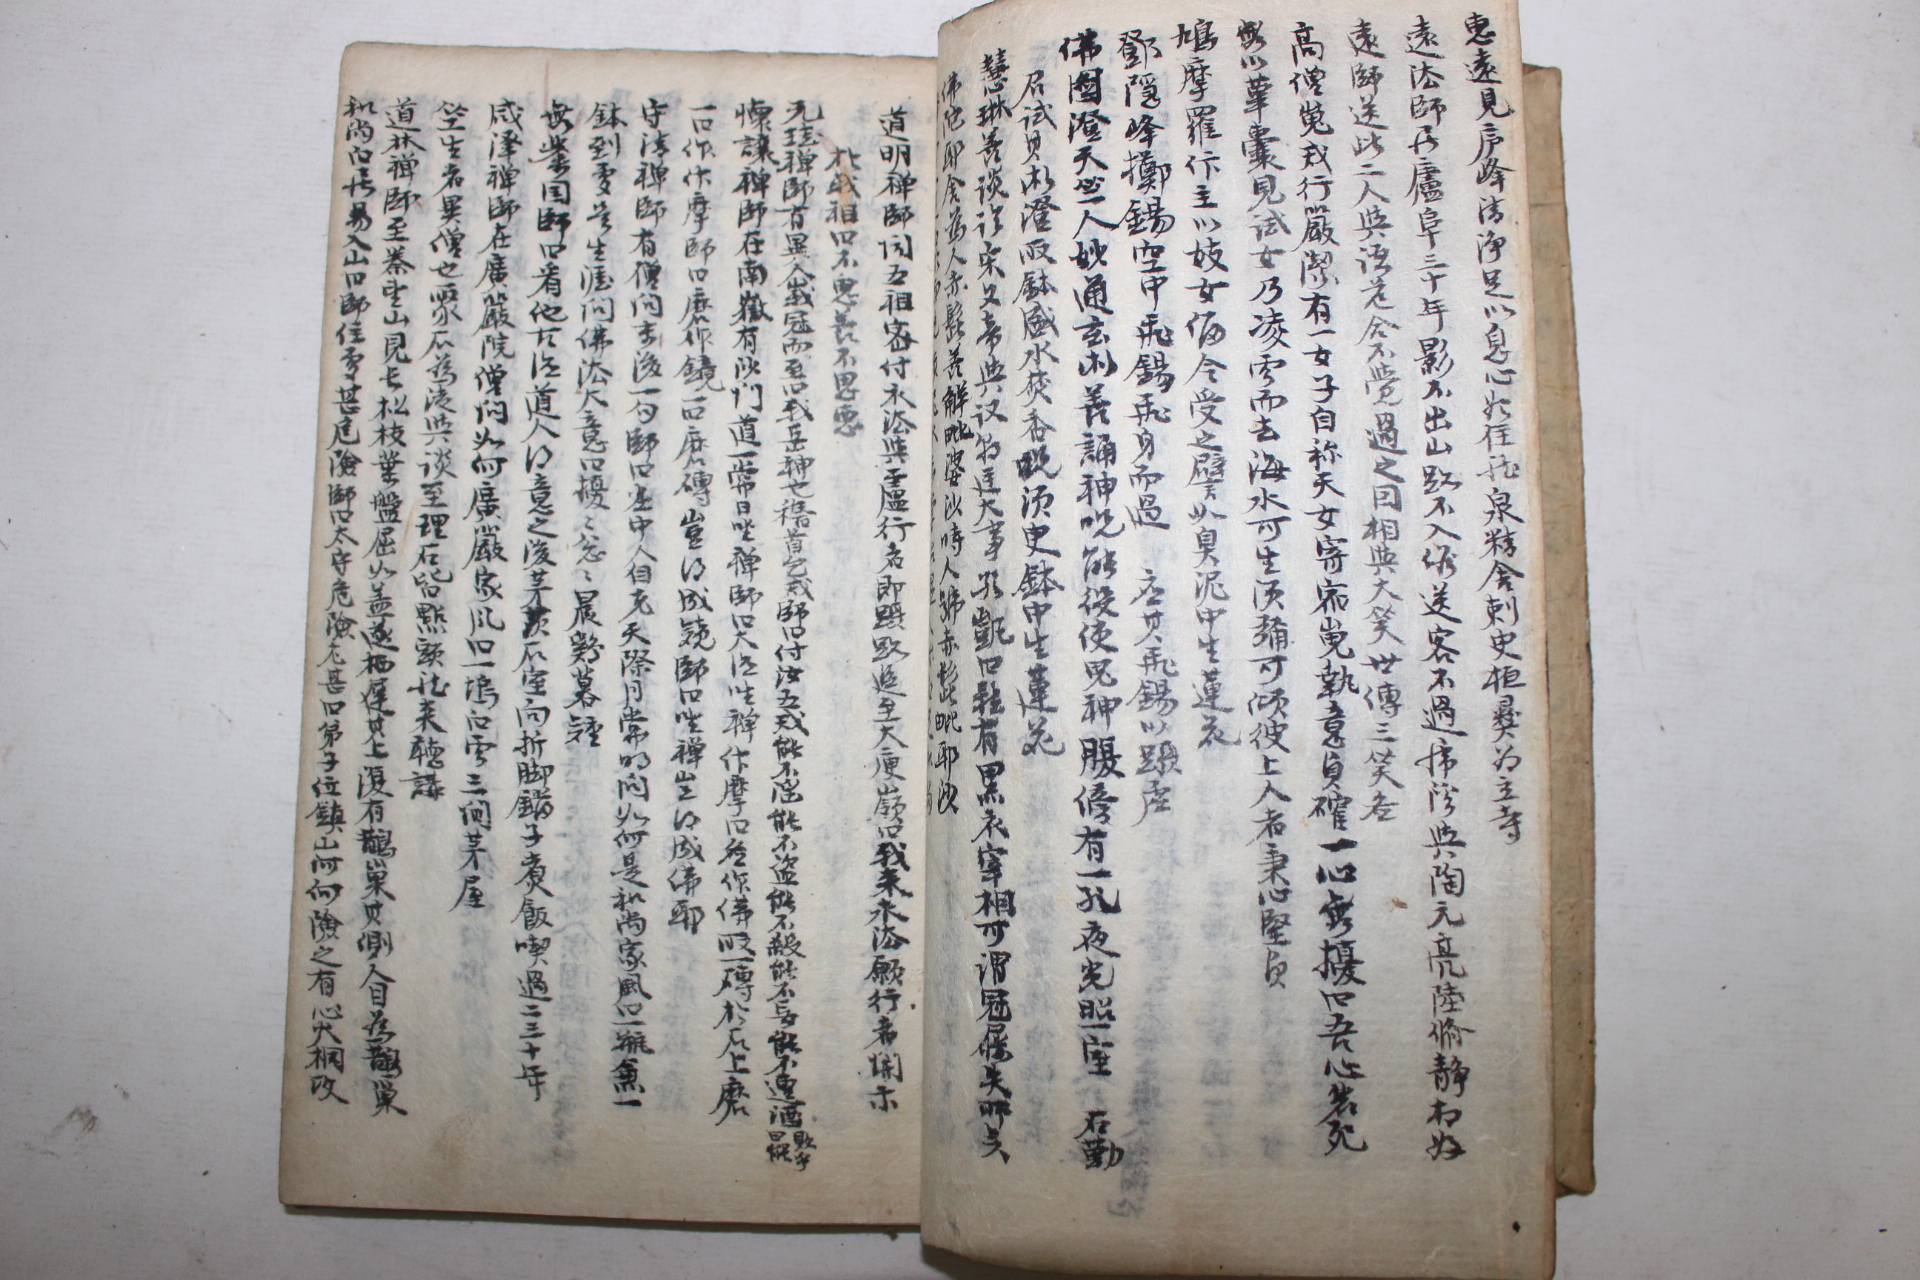 惠遠見庐峰清淨足以息心始住龍泉精舍刺史桓彛爲立寺
遠法師居廬阜三十年影不出山跡不入俗送客不過虎溪與陶元亮陸脩靜相好
遠師送此二人與語道合不覺過之因相與大笑世傳三笑
高僧嵬戒行嚴潔有一女子自称天女寄宿嵬執意貞確一心無擾曰吾心若死
無以革囊見試女乃凌雲而去海水可生須彌可傾彼上人者秉心堅貞
鳩摩羅什主以妓女偪令受之譬以臭泥中生蓮花
鄧隱峰擲錫空中飛錫飛身而過
佛圖澄天竺人妙通玄術善誦神呪能役使鬼神腹傍有一孔夜光照一室 石勒
召試其術澄取鉢盛水焚香呪須臾鉢中生蓮花
慧琳善談 宋文帝與议 大事 凱曰 有黑衣宰相可謂冠屨失所矣
佛陀耶舍爲人赤髭善解毗婆沙時人號赤髭毗耶沙
道明禪師闻五祖密付衣法與盧行者即躡跡追至大庾嶺曰我来求法願行者開示
於我祖曰不思善不思惡
元珪禪師有異人峩冠而至曰我岳神也稽首乞戒師曰付汝五戒能不淫能不盗能不殺能不妄能不遭酒敗乎曰能
懷讓禪師在南嶽有沙门道一常日坐禪師曰大德坐禪作摩曰爲作佛取一磚於石上磨
一曰作什摩師曰磨作鏡一曰磨磚豈得成鏡師曰坐禪豈得成佛耶
守清禪師有僧问最後一句師曰塞中人自老天際月常明问如何是和尚家風曰一瓶兼一
鉢到處是生涯问佛法大意曰擾擾怱怱晨鷄暮鐘
無業国師曰看他古德道人得意之後茅茨石室向折脚鐺子煮飯喫過二三十年
咸澤禪師在廣嚴院僧问如何廣嚴家风曰一塢白雲三間茅屋
竺生者異僧也聚石爲徒與談至理石皆點頭 来聽講
道林禪師至秦望山見長松枝葉盤屈如盖遂栖遲其上復有鵲巢其側人目爲鵲巢
和尚白居易入山曰師住處甚危險師曰太守危險尤甚曰弟子位鎮山河何險之有心火相攻